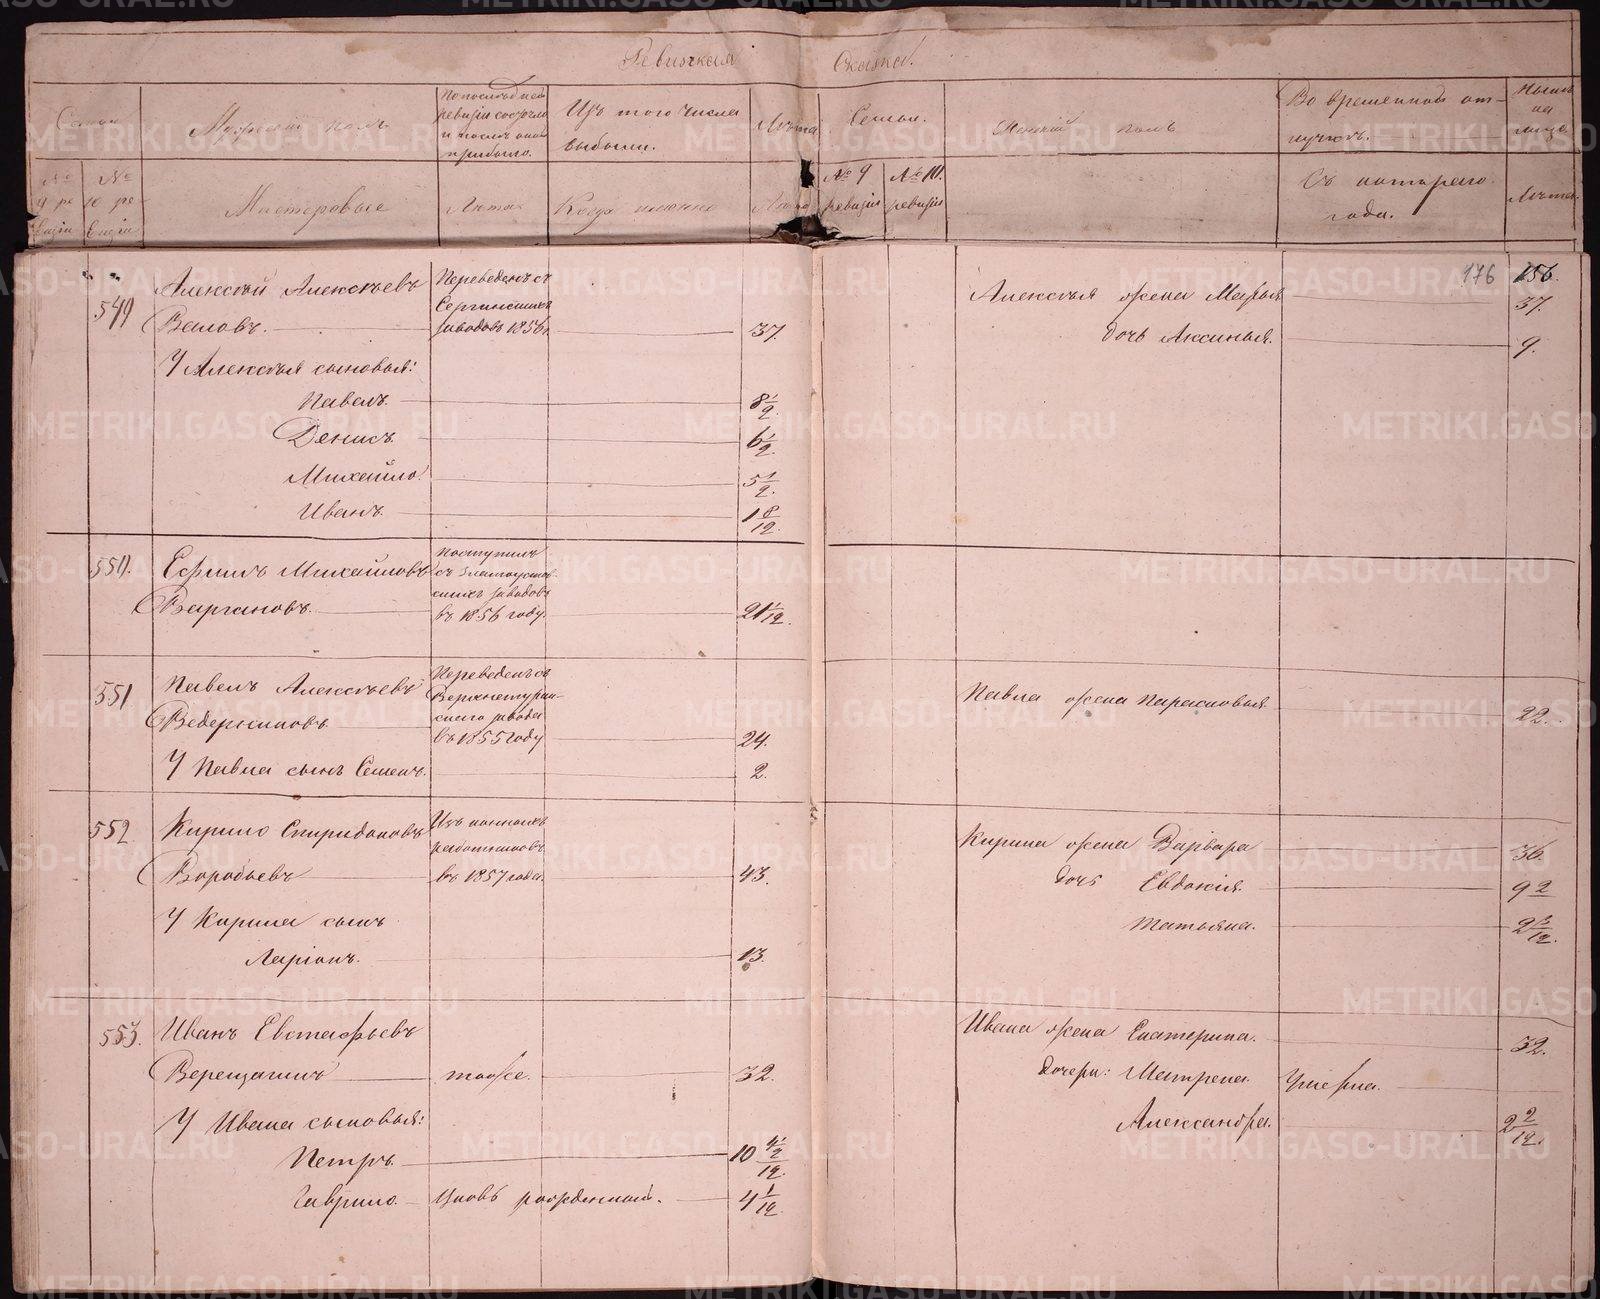 Ревизская Сказка.
Семьи.
Мужескій полъ
По последней
ревизіи состояло
и послѣ оной
прибыло.
Изъ того числа
выбыли.
Лѣта
№ 9 ре-
визіи
№ 10 ре-
визіи
Мастеровые
Лѣта
Когда именно
Лѣта
Семьи.
Женскій полъ
Во временной от-
лучкѣ.
№ 9
ревизіи
№ 10.
ревизіи
Съ котораго
года.
Лѣта.
549
Алексѣй Алексѣевъ
Переведенъ съ
Сергинскихъ
заводовъ 1856 г.
37.
У Алексѣя сыновья:
Павелъ. 8 1/2.
Денисъ. 6 1/2.
Михайло. 5 1/2.
Иванъ. 1 8/12.
176 156.
Алексѣя жена Марья 37.
дочь Аксинья. 9.
550.
Ефимъ Михайловъ
Вагановъ.
поступилъ
съ Златоустов-
скихъ заводовъ
въ 1856 году.
21 1/12.
551
Павелъ Алексѣевъ
Ведерниковъ
Переведенъ съ
Верхнетурин-
скаго завода
въ 1855 году
24.
У Павла сынъ Семенъ. 2.
Павла жена Парасковья 22.
552
Кирило Спиридоновъ
Воробьевъ
Изъ конныхъ
работниковъ
въ 1857 года.
43.
У Кирила сынъ
Ларіонъ. 13.
Кирила жена Варвара 36.
дочь Евдокія. 9 2
Татьяна. 2 3/12.
553.
Иванъ Евстафьевъ
Верещагинъ тоже. 32.
У Ивана сыновья:
Петръ. 10 4/12.
Гаврило. вновь рожденный. 4 1/12
Ивана жена Екатерина. 32.
дочери: Матрена. Умерла.
Александра. 2 2/12.
METRIKI.GASO-URAL.RU